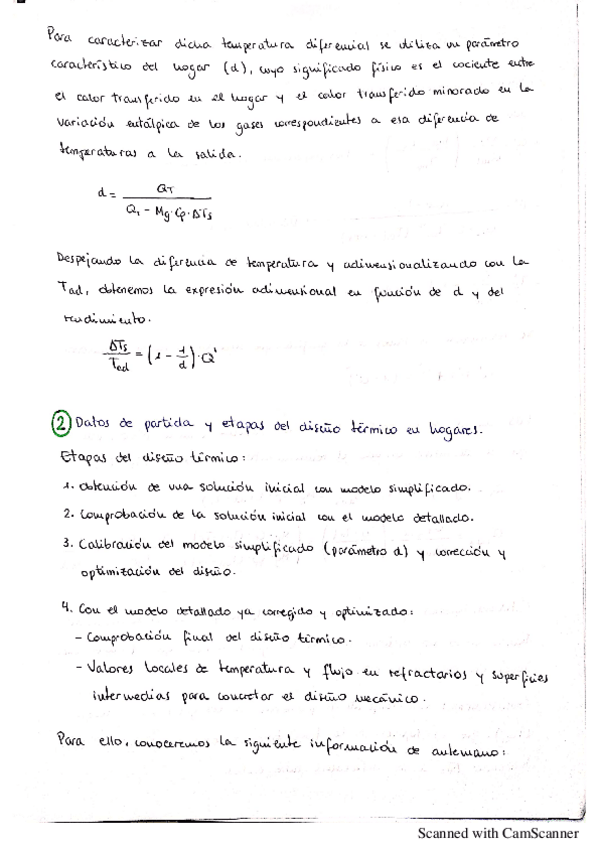 Para caracterizar dicha temperatura diferencial se utiliza un parámetro
característico del hogar (d), cuyo significado físico es el cociente entre
el calor transferido en el hogar y el calor transferido minorado en la
variación entálpica de los gases correspondientes a esa diferencia de
temperaturas a la salida.
d = QT / (Q1 - Mg·Cp·ΔTs)
Despejando la diferencia de temperatura y adimensionalizando con la
Tad, obtenemos la expresión adimensional en función de d y del
rendimiento.
ΔTs / Tad = (1 - 1/d)·Q'
2 Datos de partida y etapas del diseño térmico en hogares.
Etapas del diseño térmico:
1. Obtención de una solución inicial con modelo simplificado.
2. Comprobación de la solución inicial con el modelo detallado.
3. Calibración del modelo simplificado (parámetro d) y corrección y
optimización del diseño.
4. Con el modelo detallado ya corregido y optimizado:
- Comprobación final del diseño térmico.
- Valores locales de temperatura y flujo en refractarios y superficies
intermedias para concretar el diseño mecánico.
Para ello, conoceremos la siguiente información de antemano:
Scanned with CamScanner